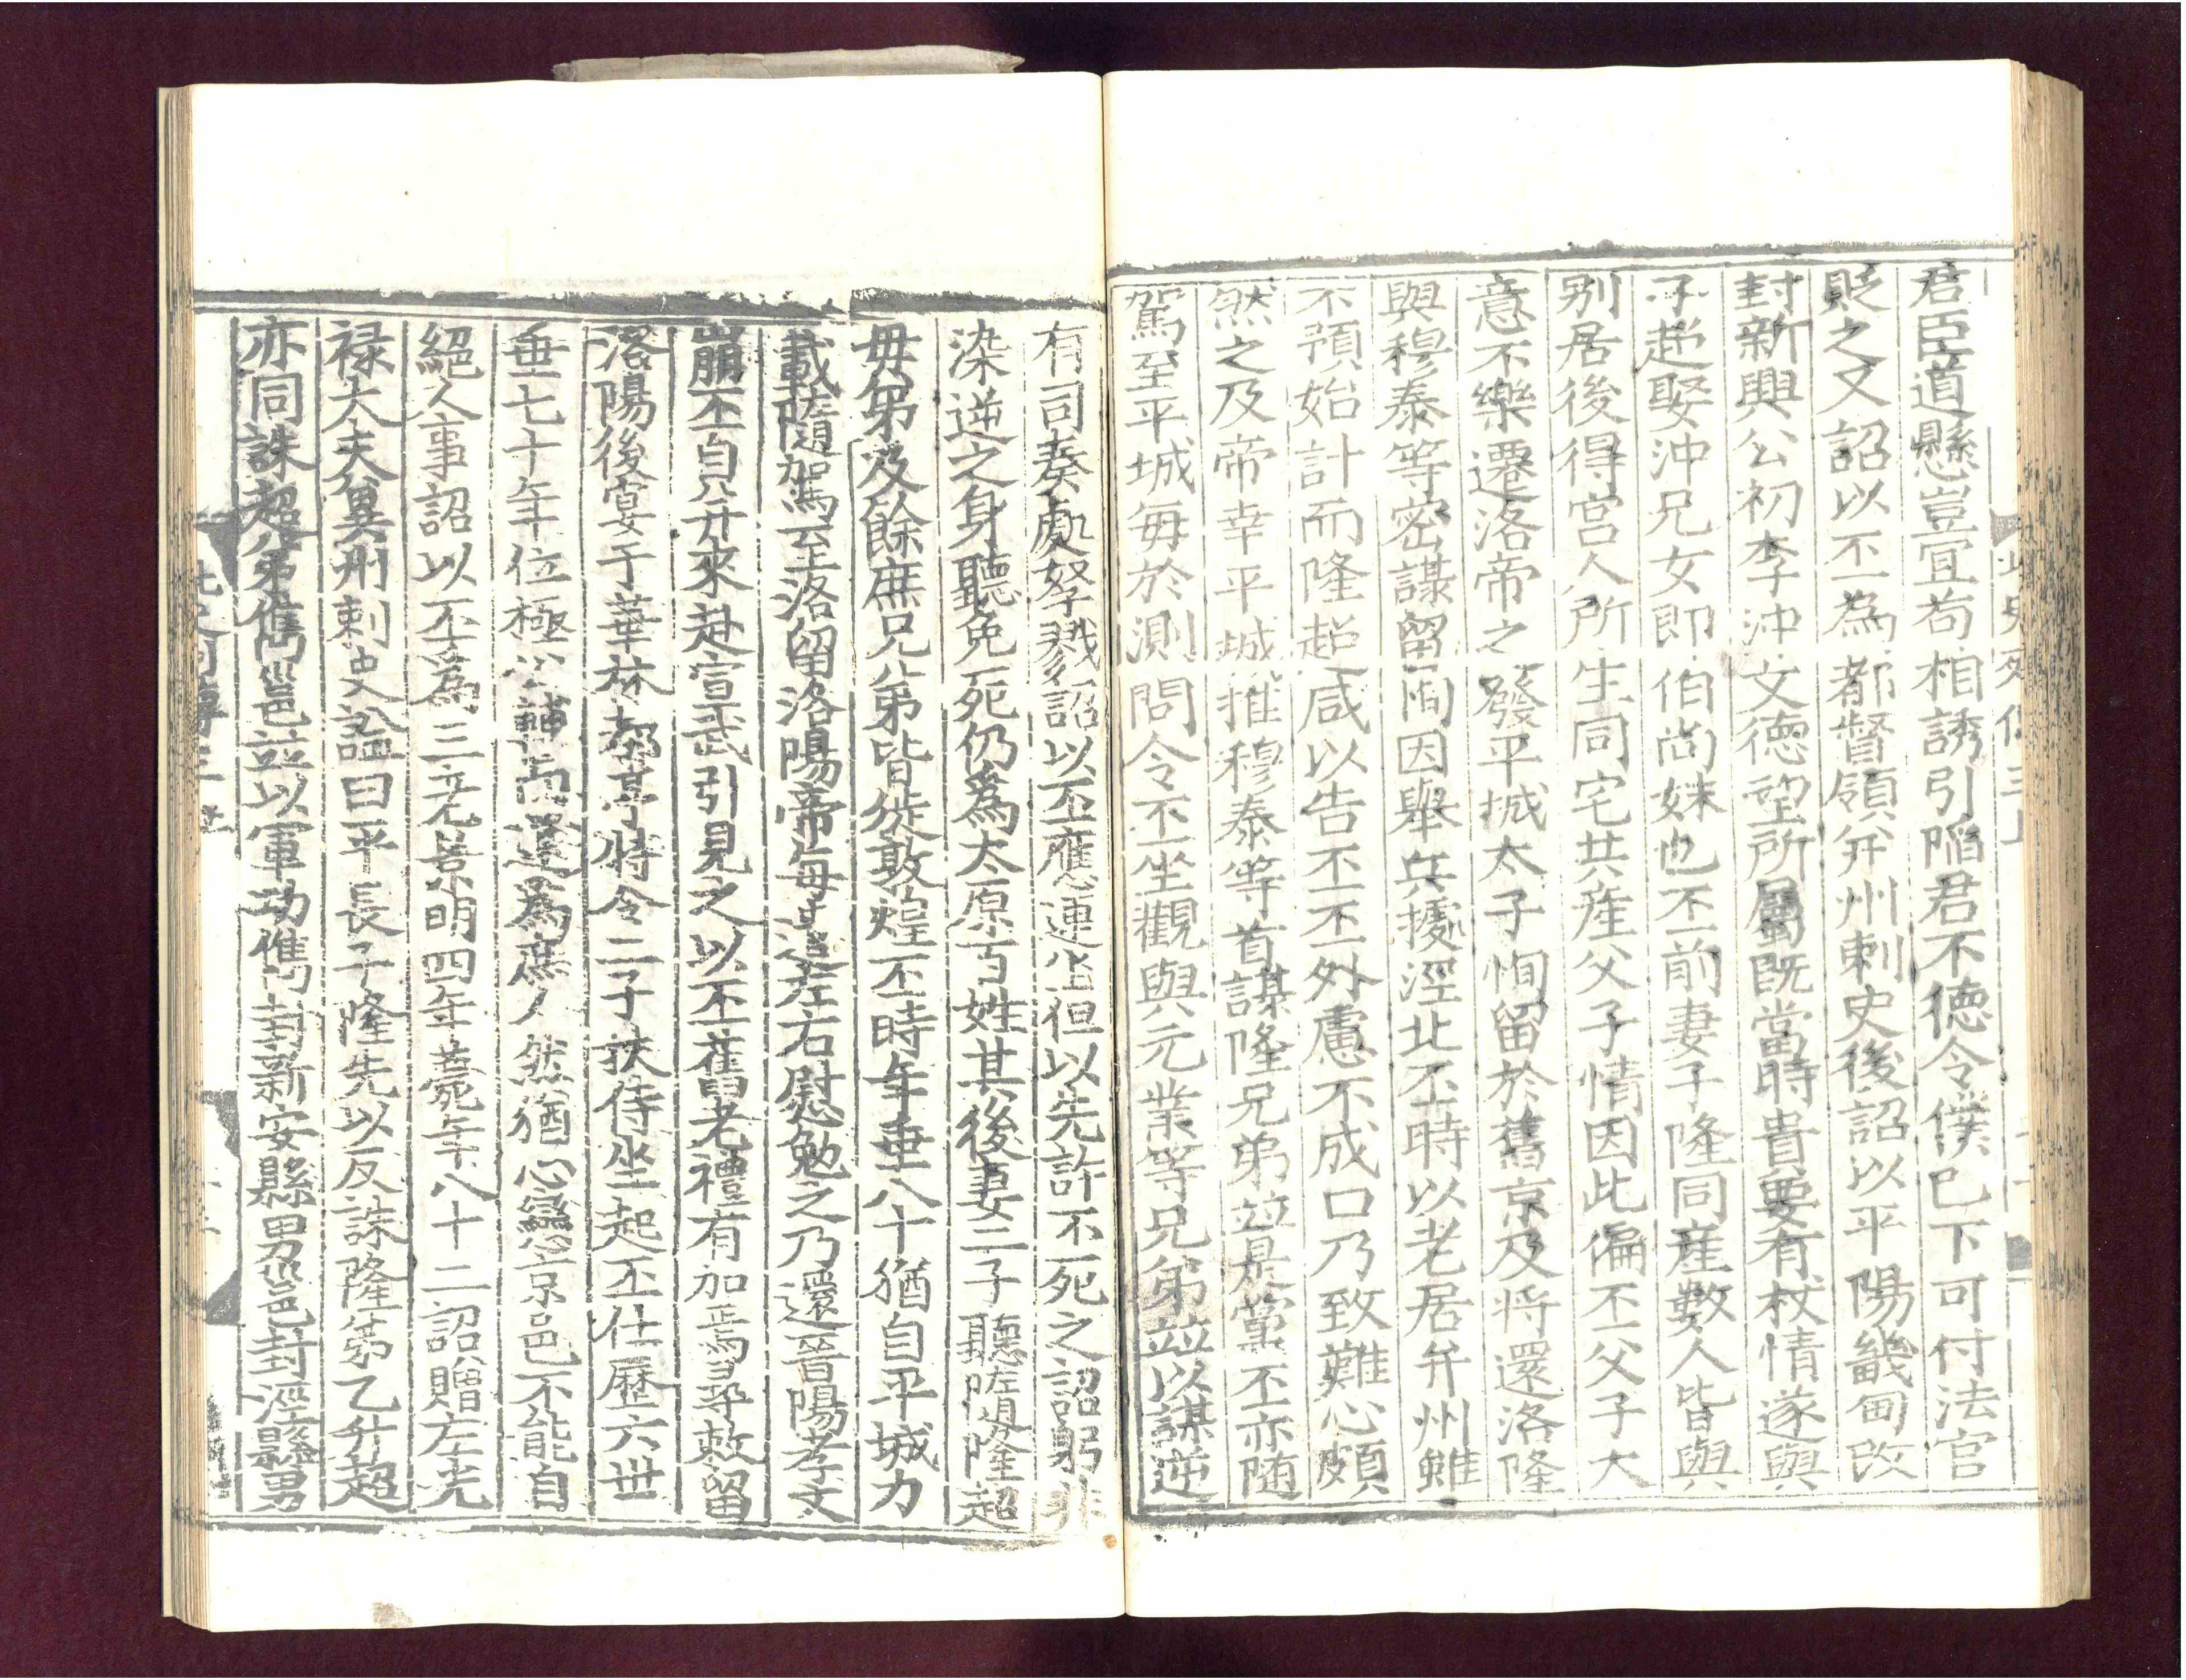 君臣道懸豈宜苟相誘引陷君不德令僕已下可付法官
貶之又詔以丕為都督領并州刺史後詔以平陽畿甸改
封新興公初李沖文德望所屬既當時貴要有杖情遂與
子超娶沖兄女即伯尚妹也丕前妻子隆同産數人皆與
别居後得宮人所生同宅共産父子情因此偏丕父子大
意不樂遷洛帝之發平城太子恂留於舊京及將還洛隆
與穆泰等密謀留恂因舉兵據涇北丕時以老居并州雖
不預始計而隆超咸以告丕丕外慮不成口乃致難心頗
然之及帝幸平城推穆泰等首謀隆兄弟並是黨丕亦随
駕至平城每於測問令丕坐觀與元業等兄弟並以謀逆
有司奏處孥戮詔以丕應連坐但以先許不死之詔躬非
染逆之身聽免死仍爲太原百姓其後妻二子聽隨隆超
母弟及餘庶兄弟皆徙敦煌丕時年垂八十猶自平城力
載隨駕至洛留洛陽帝每遣左右慰勉之乃還晉陽孝文
崩丕自并來赴宣武引見之以丕舊老禮有加焉尋敕留
洛陽後宴于華林都亭特令二子扶侍坐起丕仕歷六世
垂七十年位極公輔而還爲庶人然猶心戀京邑不能自
絕人事詔以丕爲三老景明四年薨年八十二詔贈左光
禄大夫冀州刺史謚曰平長子隆先以反誅隆弟乙升超
亦同誅超弟儁邕並以軍功儁封新安縣男邕封涇縣男